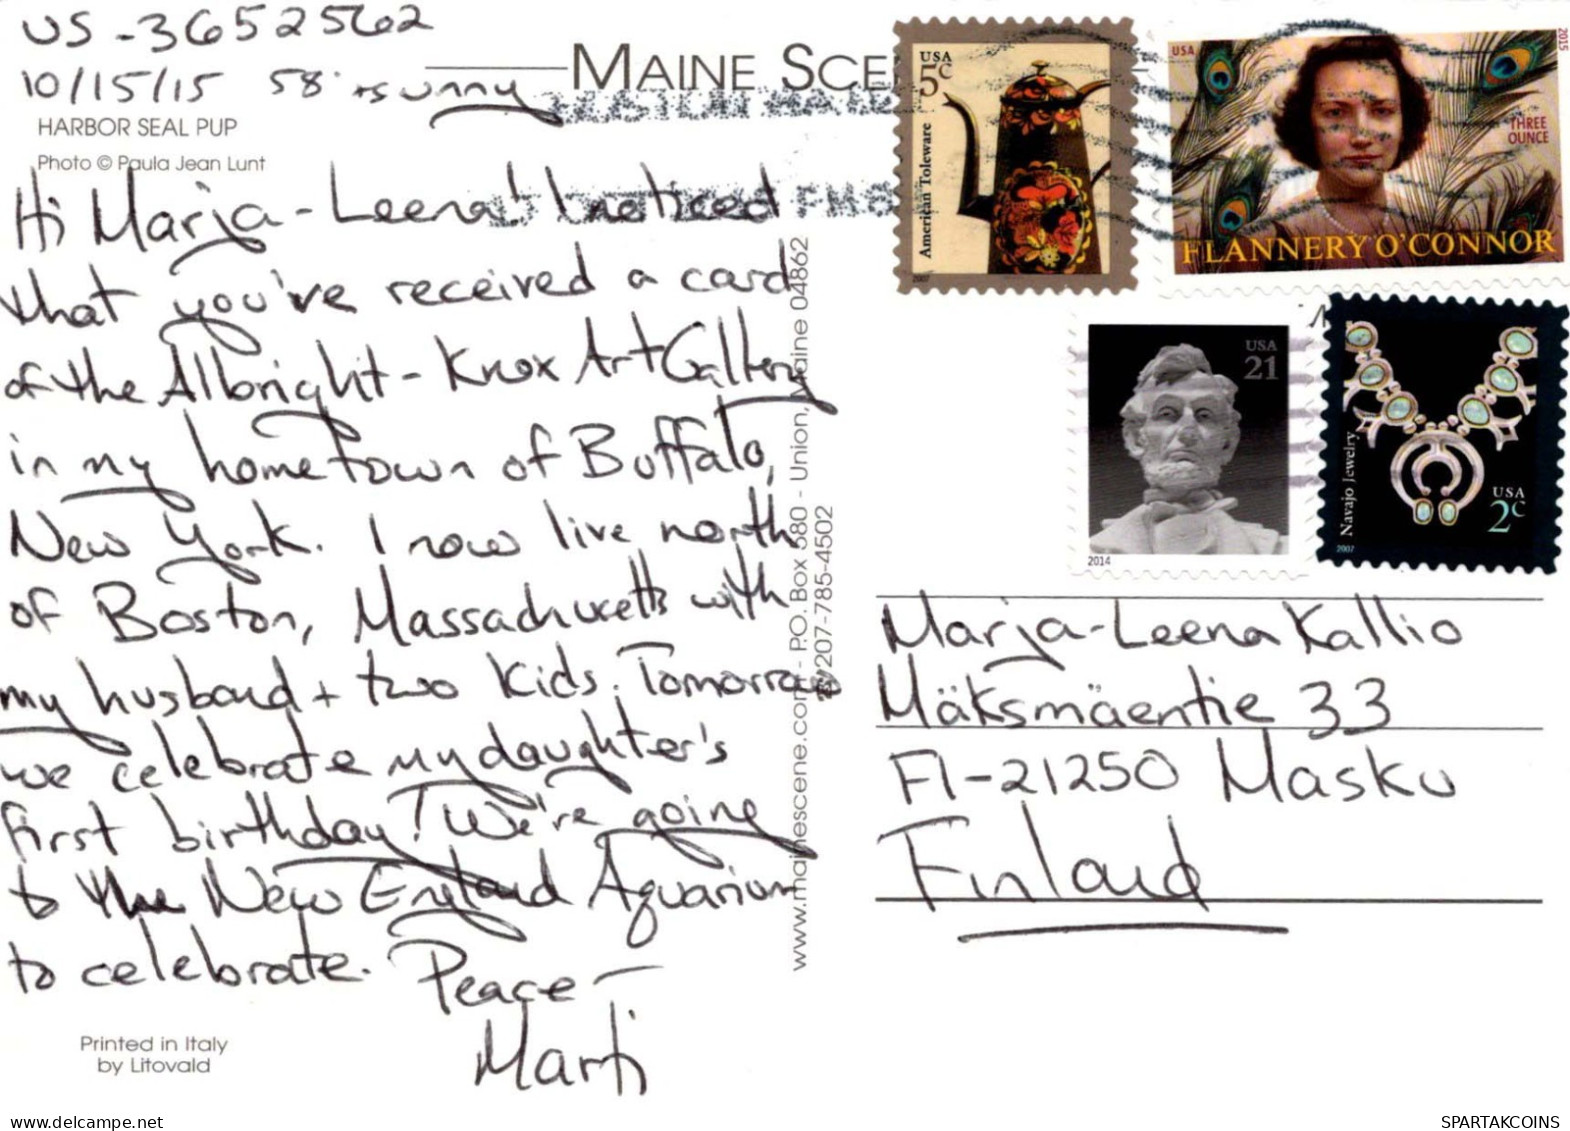 US-3652562
10/15/15 58° + sunny
MAINE SCE
HARBOR SEAL PUP
Photo © Paula Jean Lunt
Hi Marja-Leena! I noticed
that you've received a card
of the Albright-Knox Art Gallery
in my hometown of Buffalo,
New York. I now live north
of Boston, Massachusetts with
my husband + two kids. Tomorrow
we celebrate my daughter's
first birthday! We're going
to the New England Aquarium
to celebrate. Peace-
Marti
Printed in Italy
by Litovald
www.mainescene.com - P.O. Box 580 - Union, Maine 04862
207-785-4502
USA
5c
American Toleware
2007
USA
2015
THREE
OUNCE
FLANNERY O'CONNOR
USA
21
2014
Navajo Jewelry
USA
2c
2007
Marja-Leena Kallio
Mäksmäentie 33
FI-21250 Masku
Finland
https://veryimportantlot.com
SPARTAKCOINS